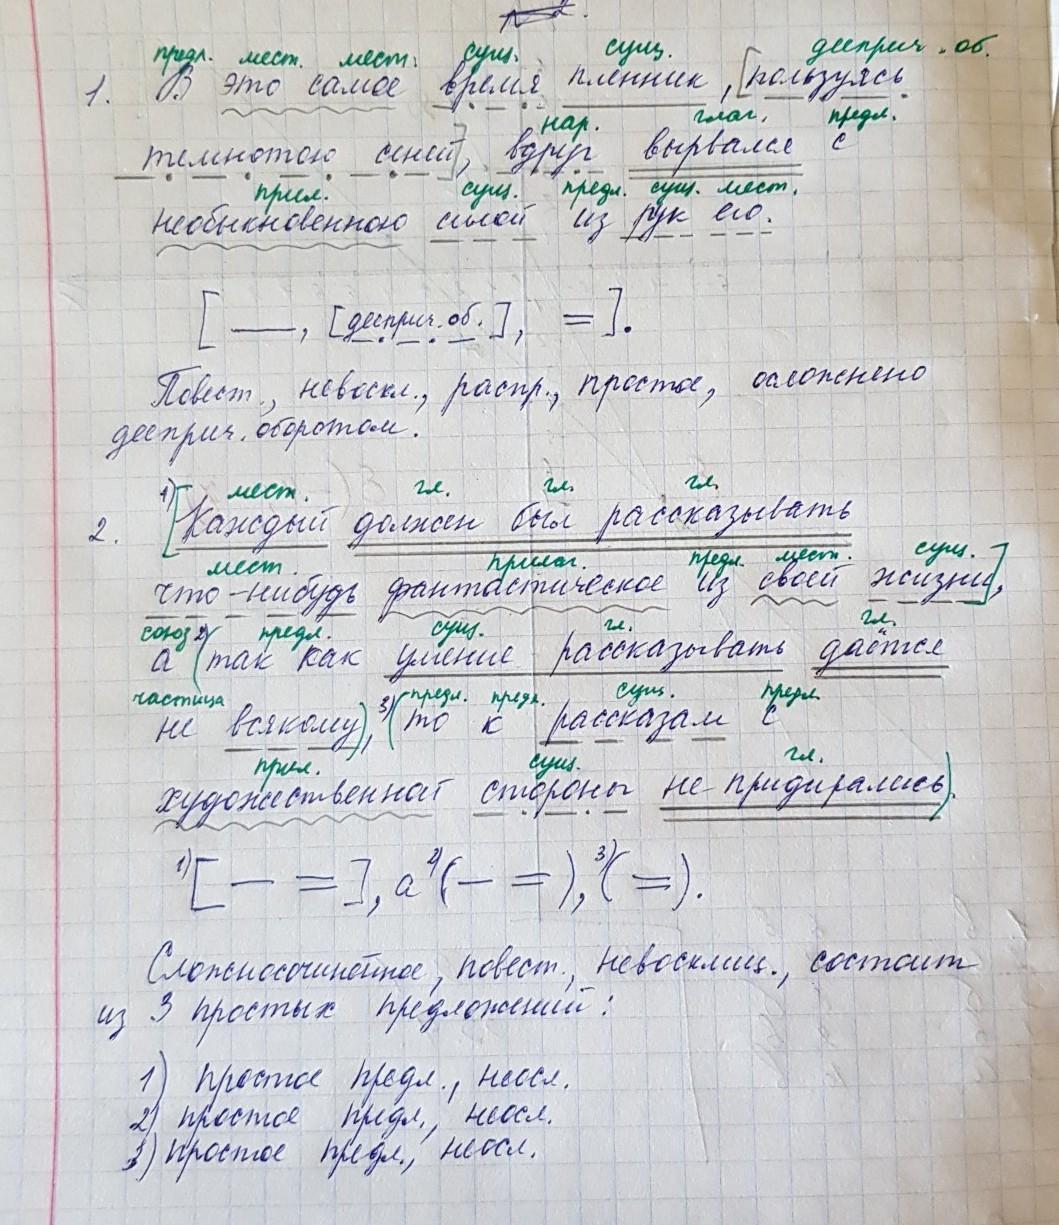 предл. мест. мест. сущ. сущ. дееприч. об.
1. В это самое время пленник, [пользуясь
нар. глаг. предл.
темнотою сеней], вдруг вырвался с
прил. сущ. предл. сущ. мест.
необыкновенною силой из рук его.
[ — , [дееприч. об.], = ].
Повест., невоскл., распр., простое, осложнено
дееприч. оборотом.
1) мест. гл. гл. гл.
2. [Каждый должен был рассказывать
мест. прилаг. предл. мест. сущ.
что-нибудь фантастическое из своей жизни],
союз 2) предл. сущ. гл. гл.
а (так как умение рассказывать даётся
частица 3) предл. предл. сущ. предл.
не всякому), (то к рассказам с
прил. сущ. гл.
художественной стороны не придирались).
1) [ — = ], а 2) ( — = ), 3) ( = ).
Сложносочинённое, повест., невосклиц., состоит
из 3 простых предложений:
1) простое предл., неосл.
2) простое предл., неосл.
3) простое предл., неосл.